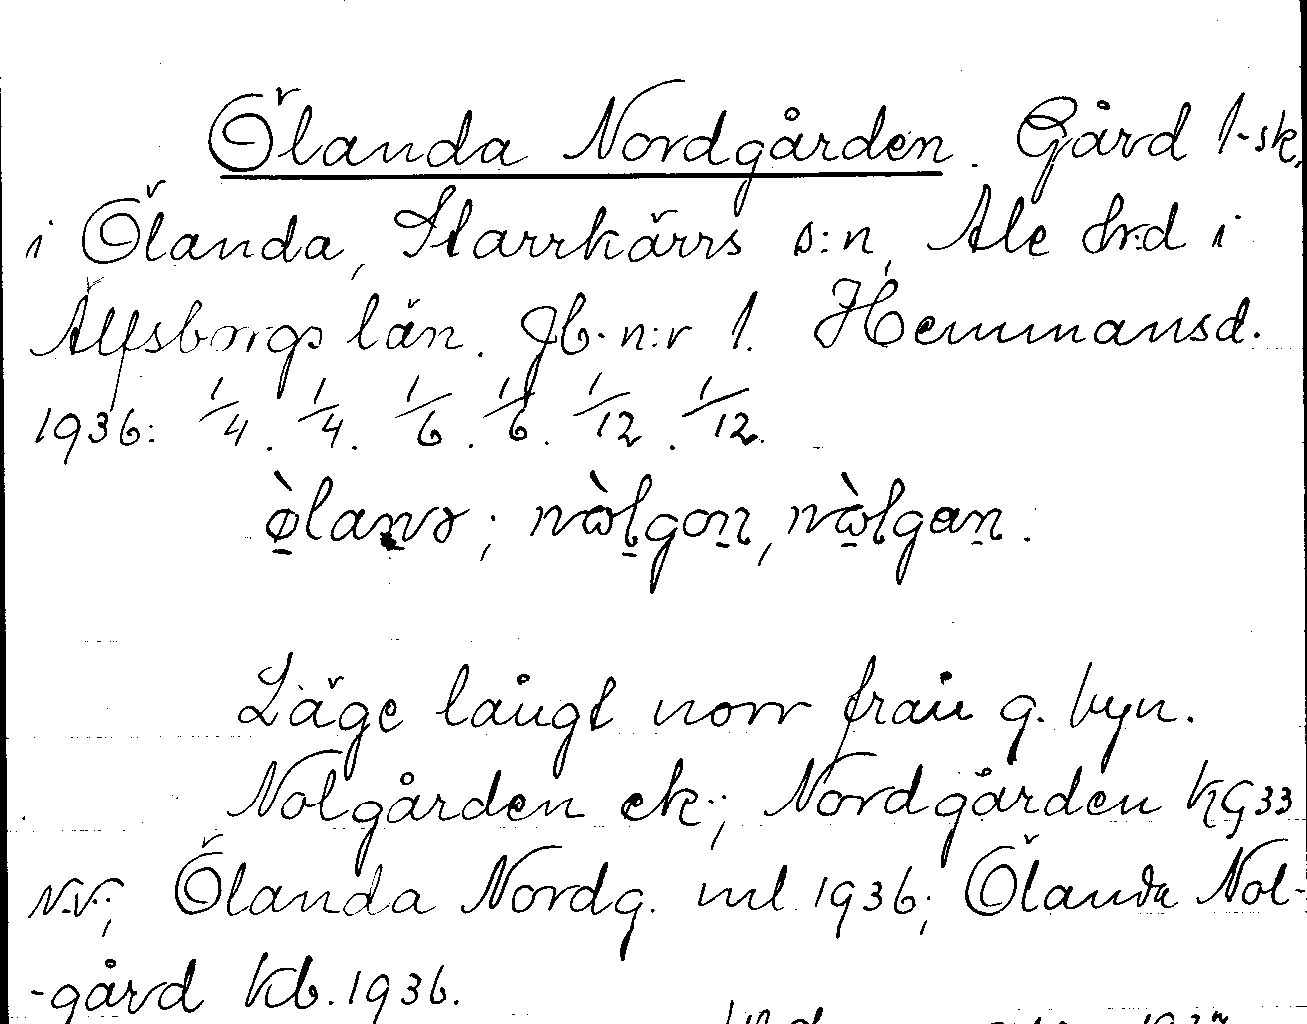 Ölanda Nordgården. Gård 1-sk,
i Ölanda, Starrkärrs s:n, Ale hrd i
Älfsborgs län. Jb. n:r 1. Hemmansd.
1936: 1/4. 1/4. 1/6. 1/6. 1/12. 1/12.
ø̀lanə; nɷ̀lgon, nɷ̀lgan.
Läge långt norr från g. byn.
Nolgården ek.; Nordgården KG 33
N.V.; Ölanda Nordg. ml 1936; Ölanda Nol-
-gård kb. 1936.